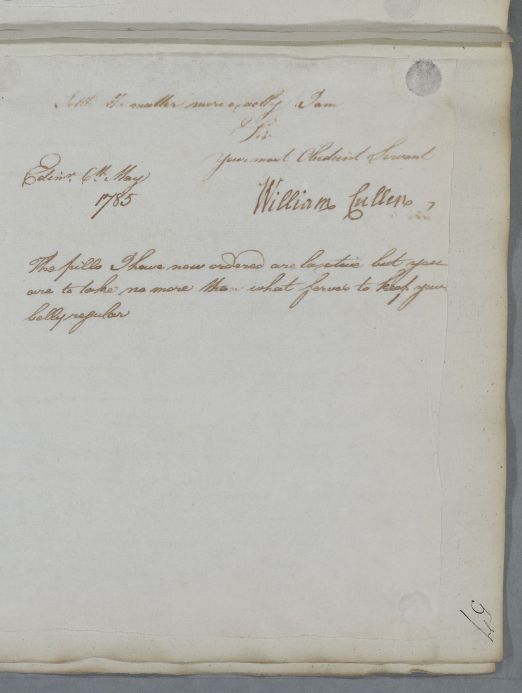 the matter more exactly. I am
Sir
Your most Obedient Servant
Edinr. 6th. May
1785
William Cullen
The pills I have now ordered are laxative but you
are to take no more than what serves to keep your
belly regular